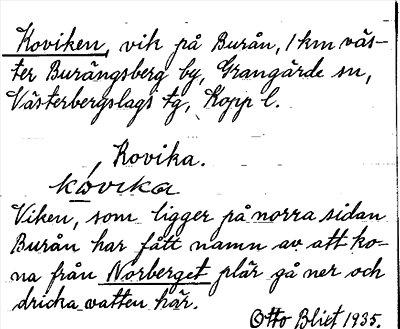 Koviken, vik på Burån, 1 km väs-
ter Burängsberg by, Grangärde sn,
Västerbergslags tg, Kopp l.
Kovika.
kóvika
Viken, som ligger på norra sidan
Burån har fått namn av att ko-
na från Norberget plär gå ner och
dricka vatten här.
Otto Blixt 1935.